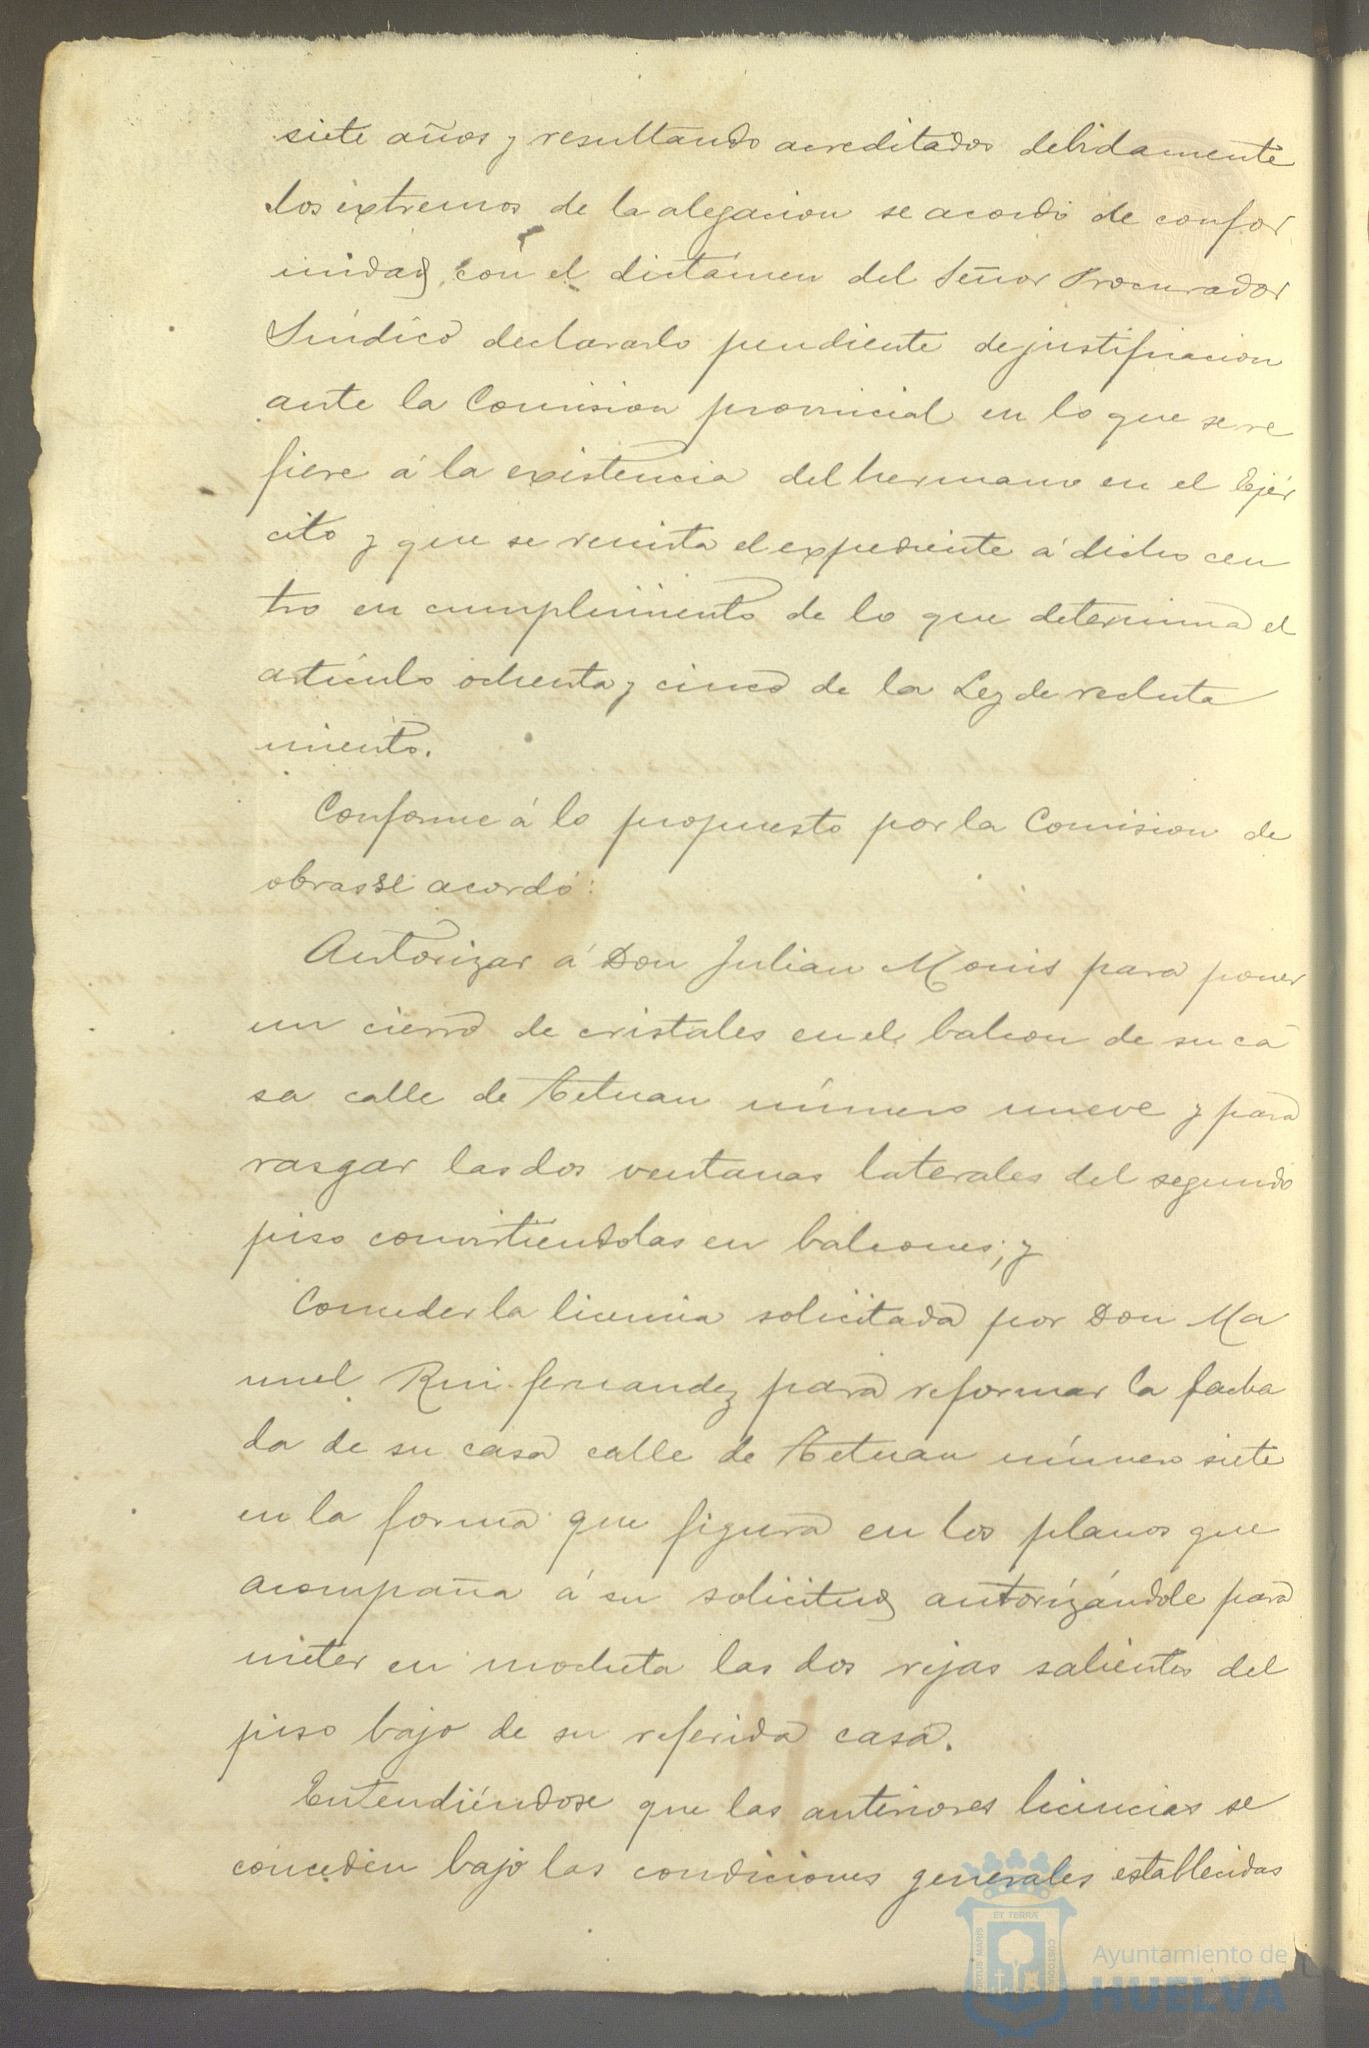 siete años y resultando acreditados debidamente
los extremos de la alegacion se acordó de confor
midad con el dictámen del Señor Procurador
Síndico declararlo pendiente de justificacion
ante la Comision provincial en lo que se re
fiere á la existencia del hermano en el Ejér
cito y que se remita el expediente á dicho cen
tro en cumplimiento de lo que determina el
artículo ochenta y cinco de la Ley de recluta
miento.
Conforme á lo propuesto por la Comision de
obras se acordó:
Autorizar á Don Julian Monis para poner
un cierro de cristales en el balcon de su ca
sa calle de Tetuan número nueve y para
rasgar las dos ventanas laterales del segundo
piso convirtiendolas en balcones; y
Conceder la licencia solicitada por Don Ma
nuel Ruiz fernandez para reformar la facha
da de su casa calle de Tetuan número siete
en la forma que figura en los planos que
acompaña á su solicitud autorizándole para
meter en mocheta las dos rejas salientes del
piso bajo de su referida casa.
Entendiéndose que las anteriores licencias se
conceden bajo las condiciones generales establecidas
ET TERRÆ
PORTUS MARIS
CUSTODIA
Ayuntamiento de
HUELVA